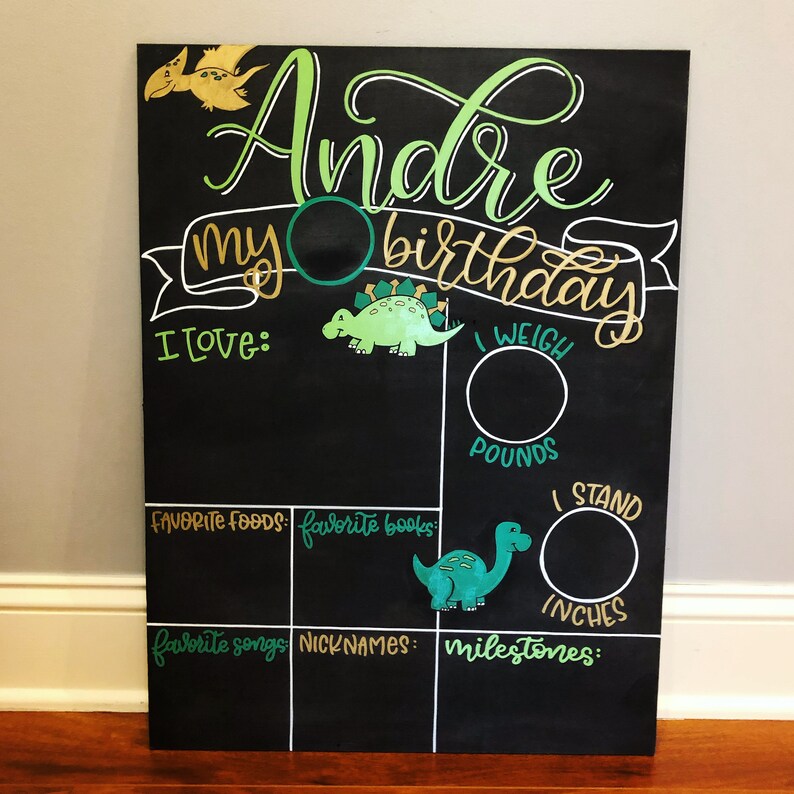 Andre
my birthday
I Love:
I WEIGH
POUNDS
I STAND
INCHES
FAVORITE FOODS:
favorite books:
favorite songs:
NICKNAMES:
milestones: